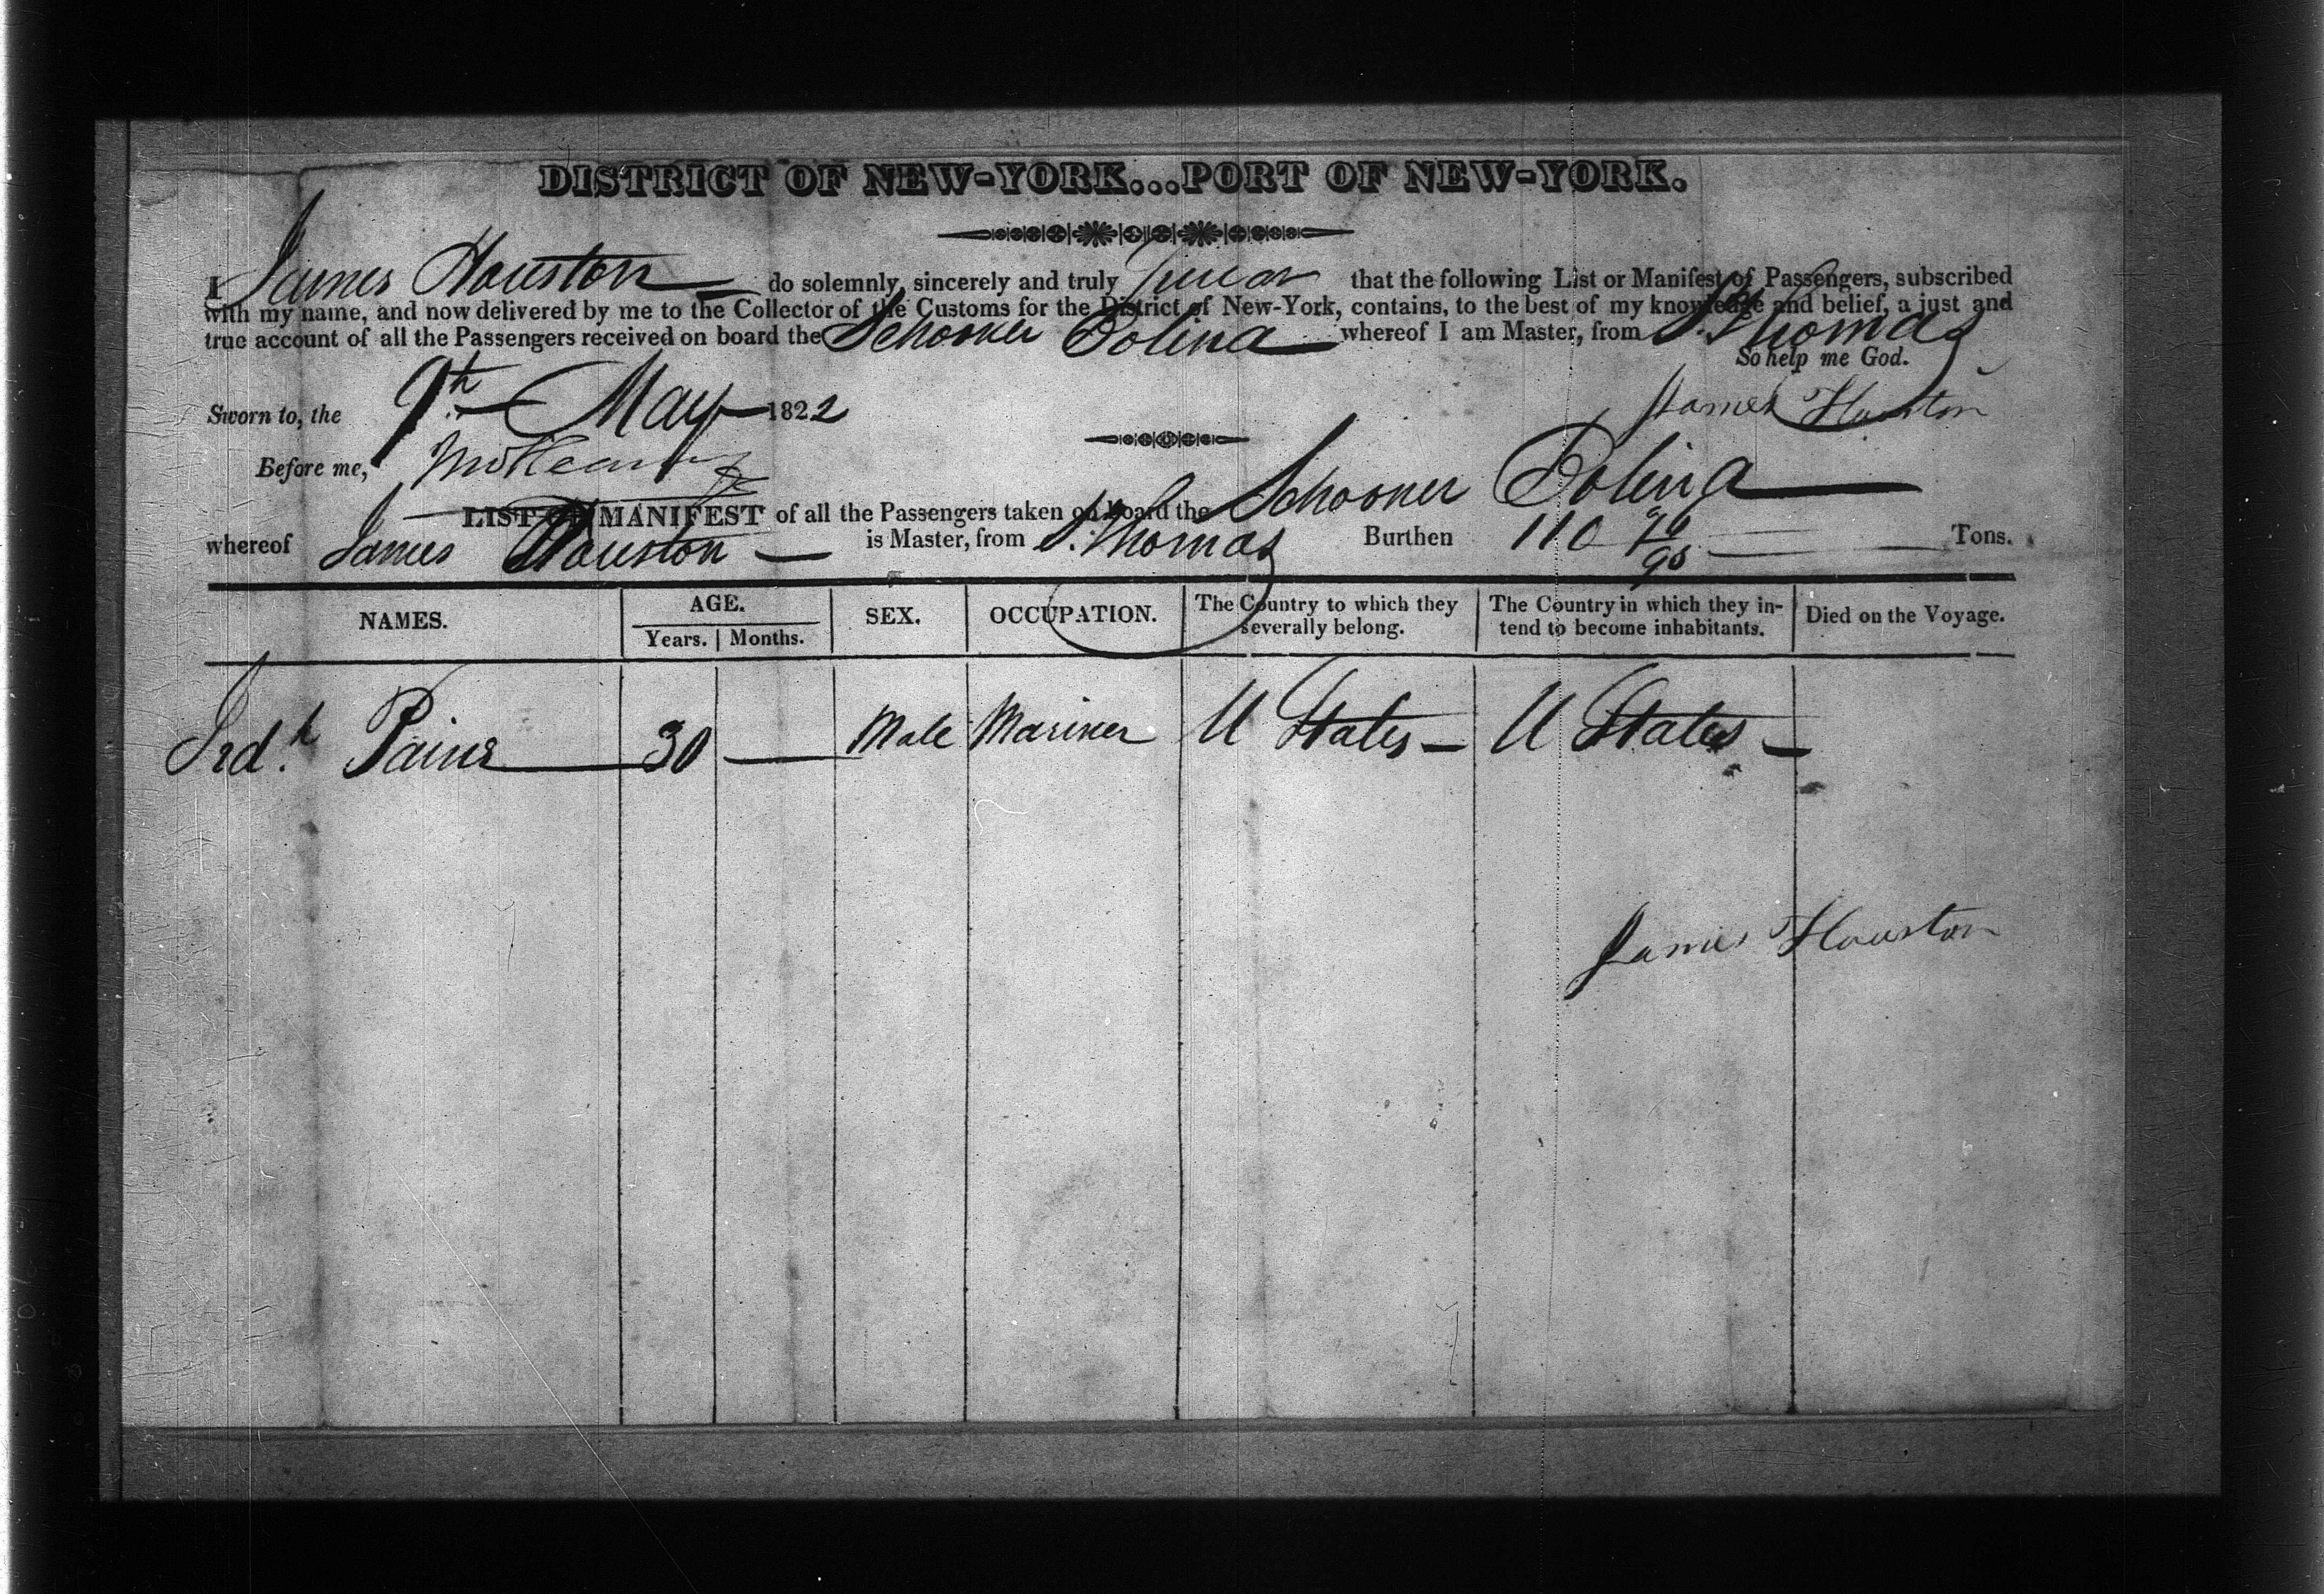 DISTRICT OF NEW-YORK...PORT OF NEW-YORK.
I James Houston do solemnly, sincerely and truly swear that the following List or Manifest of Passengers, subscribed
with my name, and now delivered by me to the Collector of the Customs for the District of New-York, contains, to the best of my knowledge and belief, a just and
true account of all the Passengers received on board the Schooner Bolina whereof I am Master, from St. Thomas
So help me God.
Sworn to, the 9th May 1822 James Houston
Before me,
LIST OR MANIFEST of all the Passengers taken on board the Schooner Bolina
whereof James Houston is Master, from St. Thomas Burthen 110 Tons.
NAMES. AGE. SEX. OCCUPATION. The Country to which they severally belong. The Country in which they in-tend to become inhabitants. Died on the Voyage.
Years. Months.
Paine 30 Male Mariner U States U States
James Houston